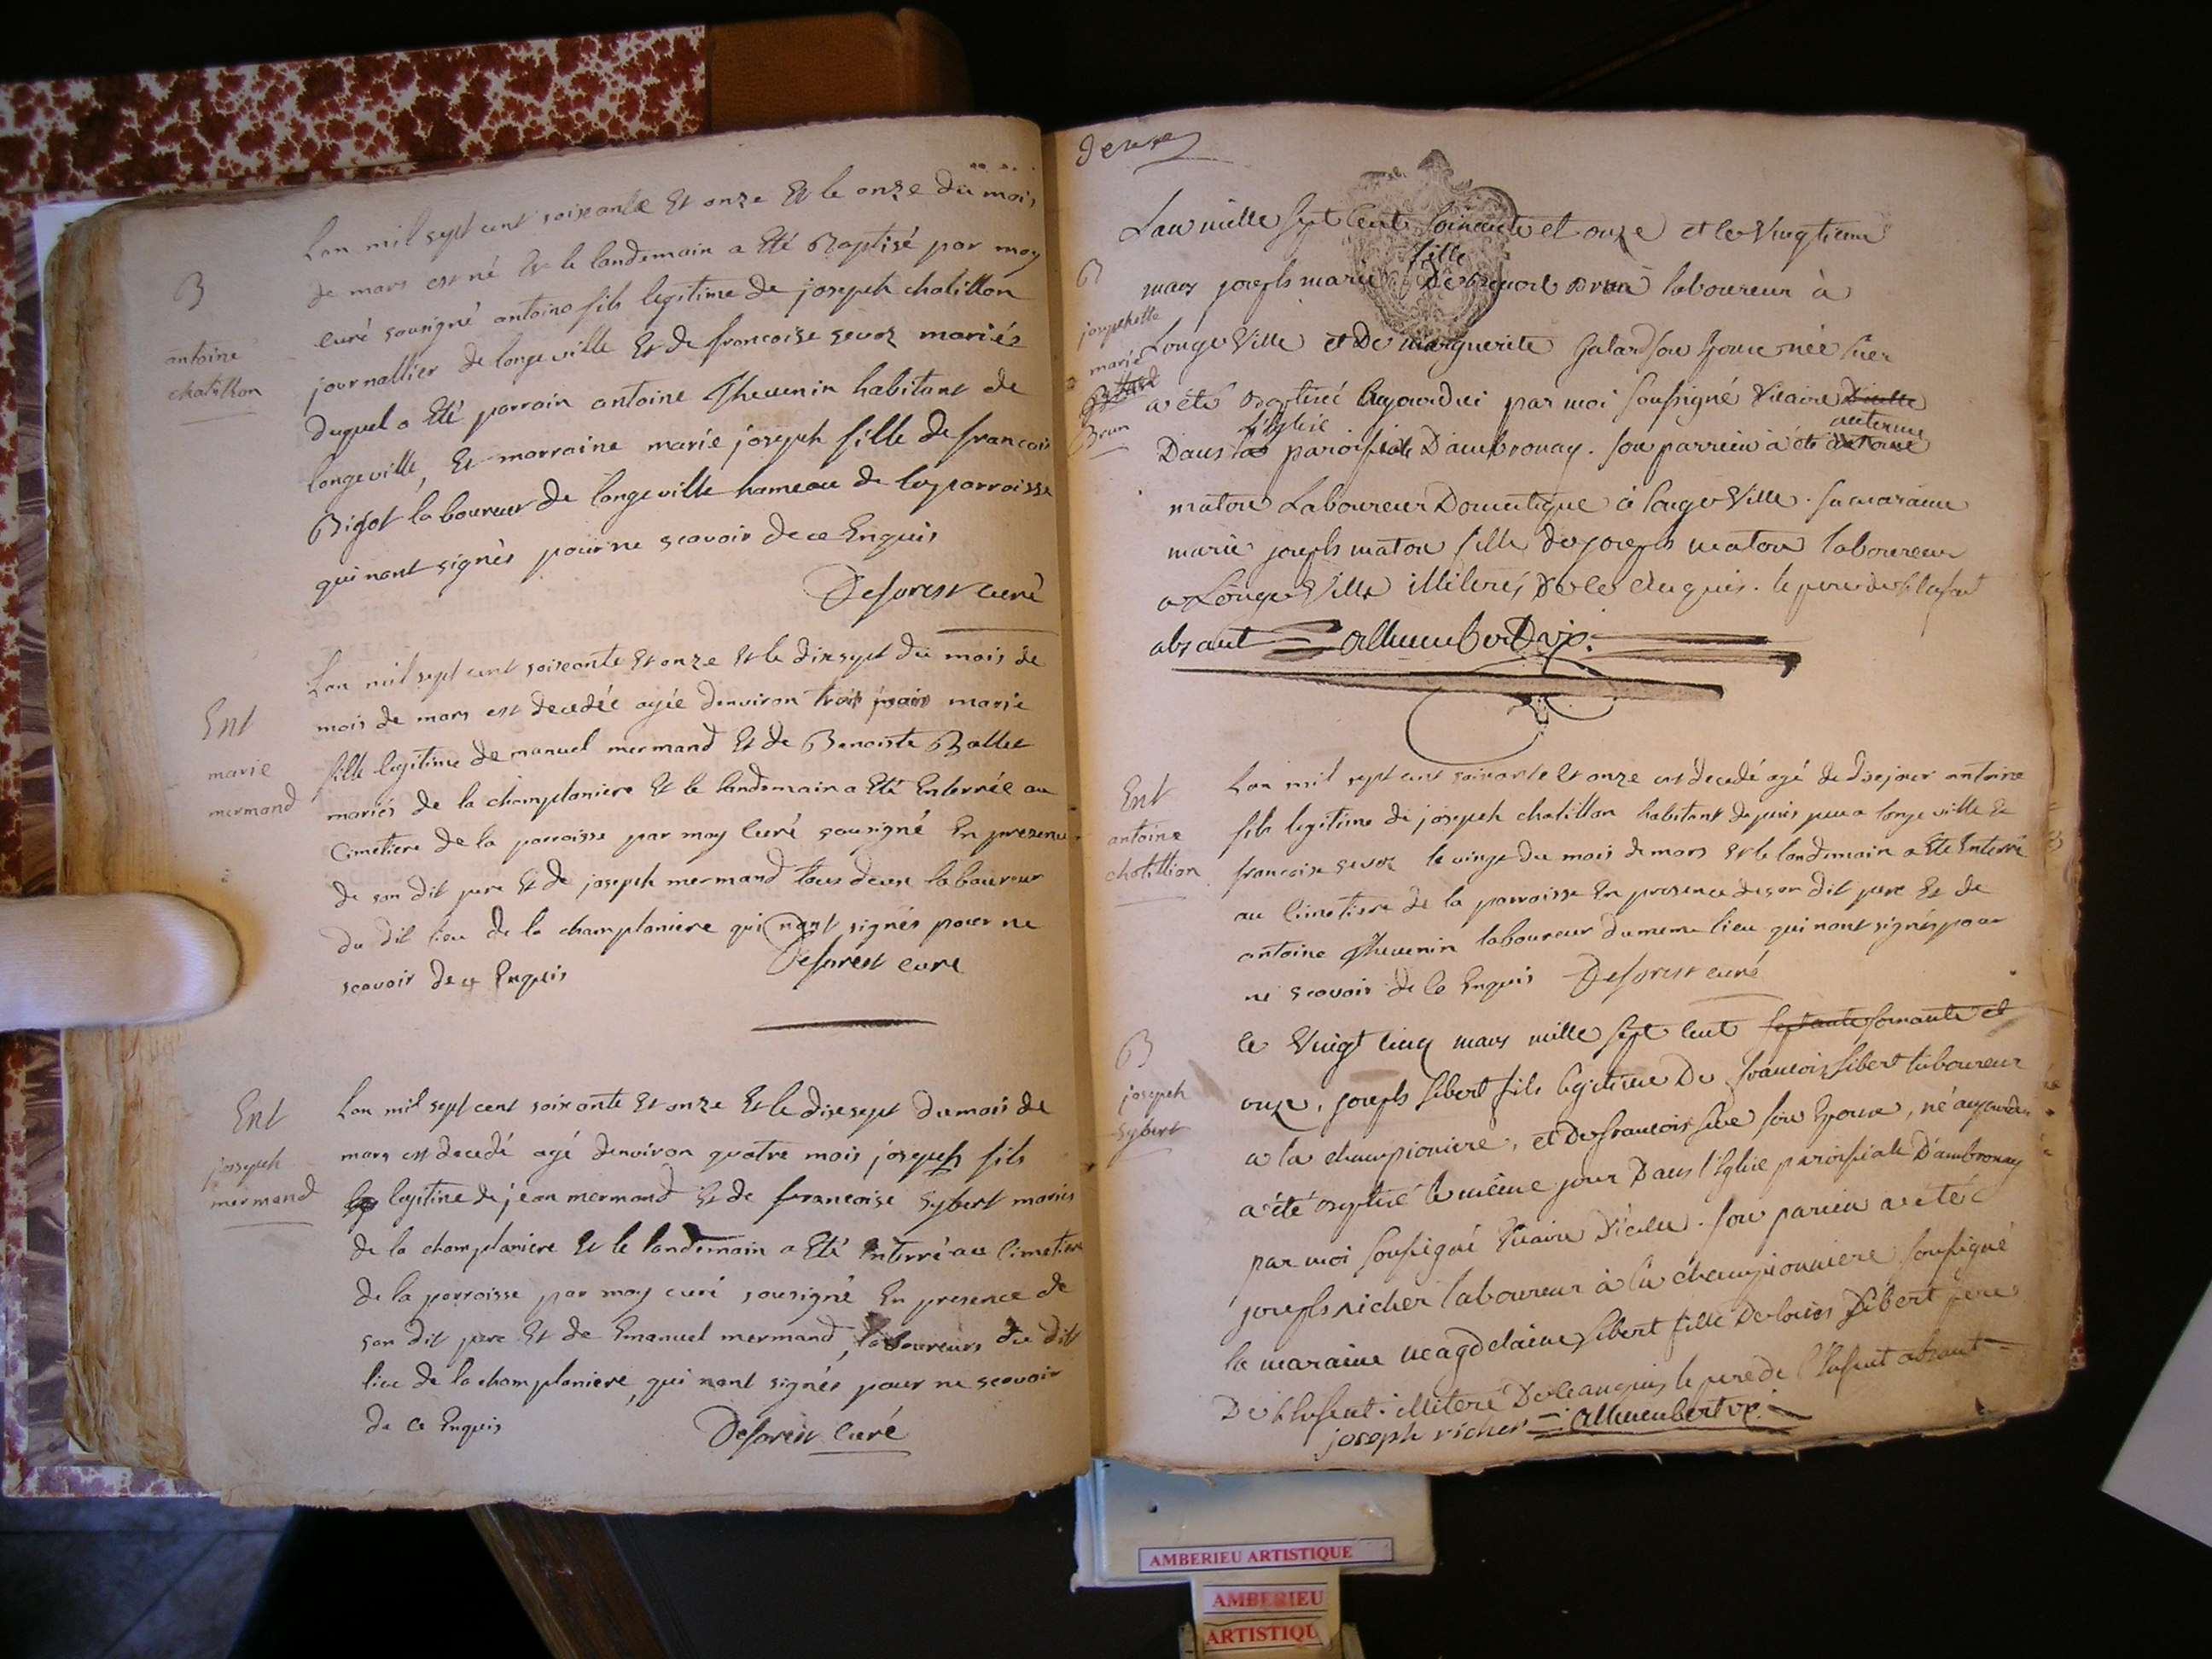 B
antoine
chatillon
Lan mil sept cent soixante Et onze Et le onze du mois
de mars est né Et le landemain a Eté Baptisé par moy
curé sousigné antoine fils legitime de joseph chatillon
journallier de longeville Et de francoise sevoz mariés
duquel a Eté parrain antoine Thevenin habitant de
longeville, Et marraine marie joseph fille de francois
Bigot laboureur de longeville hameau de la parroisse
qui nont signés pour ne scavoir de ce Enquis
Deforest curé
Ent
marie
mermand
Lan mil sept cent soixante Et onze Et le dix sept du mois de
mois de mars est decedée agée denviron trois mois marie
fille legitime de manuel mermand Et de Benoiste Ballet
mariés de la championiere Et le landemain a Eté Enterrée au
Cimetiere de la parroisse par moy Curé sousigné En presence
de son dit pere Et de joseph mermand tous deux laboureur
du dit lieu de la championiere qui nont signés pour ne
scavoir de ce Enquis Deforest curé
Ent
joseph
mermand
Lan mil sept cent soixante Et onze Et le dix sept du mois de
mars est decedé agé denviron quatre mois joseph fils
legitime de jean mermand Et de francoise sybert mariés
de la championiere Et le landemain a Eté Enterré au Cimetiere
de la parroisse par moy curé sousigné En presence de
son dit pere Et de Emanuel mermand, laboureurs du dit
lieu de la championiere, qui nont signés pour ne scavoir
de ce Enquis Deforest Curé
deux
B
josephette
marie
Brun
L'an mille sept cent soixante et onze et le vingtieme
mars joseph marie fille De benoit brun laboureur à
Longe Ville et De marguerite Galard son Epouse née hier
a été baptisé aujourdui par moi soussigné Vicaire D'icelle
Dans l'Eglise paroissiale D'ambronay. son parrein à été antoine
maton Laboureur Domestique à longe Ville. sa maraine
marie joseph maton fille de joseph maton laboureur
a Longe Ville illiterés De ce enquis. le pere de l'enfant
absant = allumbert vic.
Ent
antoine
chatillion
Lan mil sept cent soixante Et onze est decedé agé de dix jour antoine
fils legitime de joseph chatillon habitant depuis peu a longeville Et
francoise sevoz le vingt du mois de mars Et le landemain a Eté Enterré
au Cimetiere de la parroisse En presence de son dit pere Et de
antoine Thevenin laboureur du meme lieu qui nont signés pour
ne scavoir de ce Enquis Deforest curé
B
joseph
sybert
le Vingt cinq mars mille sept cent septante soixante et
onze, joseph sibert fils legitime De francois sibert laboureur
a la championiere, et De francoise seve son Epouse, né aujourdui
a été baptisé le même jour Dans l'Eglise paroissiale D'ambronay
par moi soussigné Vicaire D'icelle. son parein a été
joseph richer laboureur à la championniere soussigné
la maraine magdelaine sibert fille De louis sibert frere
De l'enfant. illiteré De ce enquis, le pere de l'enfant absant =
joseph richer = allumbert vic.
AMBERIEU ARTISTIQUE
AMBERIEU
ARTISTIQU